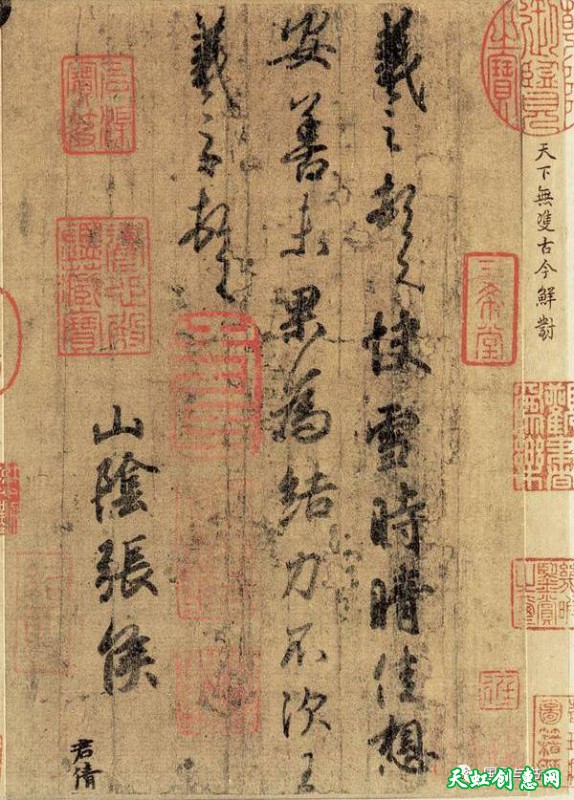 天下無雙古今鮮對
三希堂
羲之頓首快雪時晴佳想
安善未果為結力不次王
羲之頓首
山陰張侯
君倩
石渠寶笈
養心殿鑑藏寶
天虹创意网